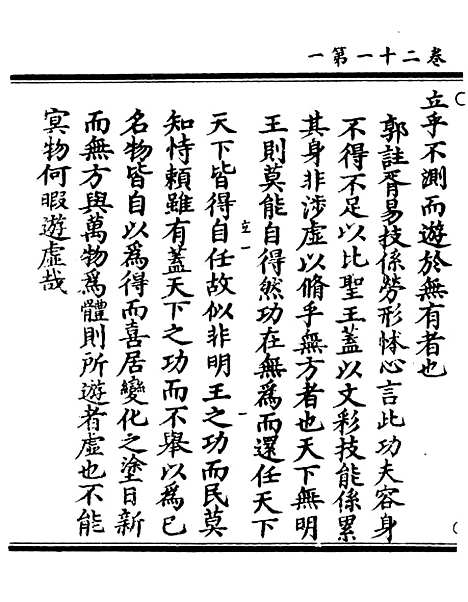 卷二十一第一
立乎不測而遊於無有者也
郭註胥易技係勞形怵心言此功夫容身
不得不足以比聖王蓋以文彩技能係累
其身非涉虛以脩乎無方者也天下無明
王則莫能自得然功在無爲而還任天下
立一
一
天下皆得自任故似非明王之功而民莫
知恃賴雖有蓋天下之功而不舉以爲已
名物皆自以爲得而喜居變化之塗日新
而無方與萬物爲體則所遊者虛也不能
㝠物何暇遊虛哉